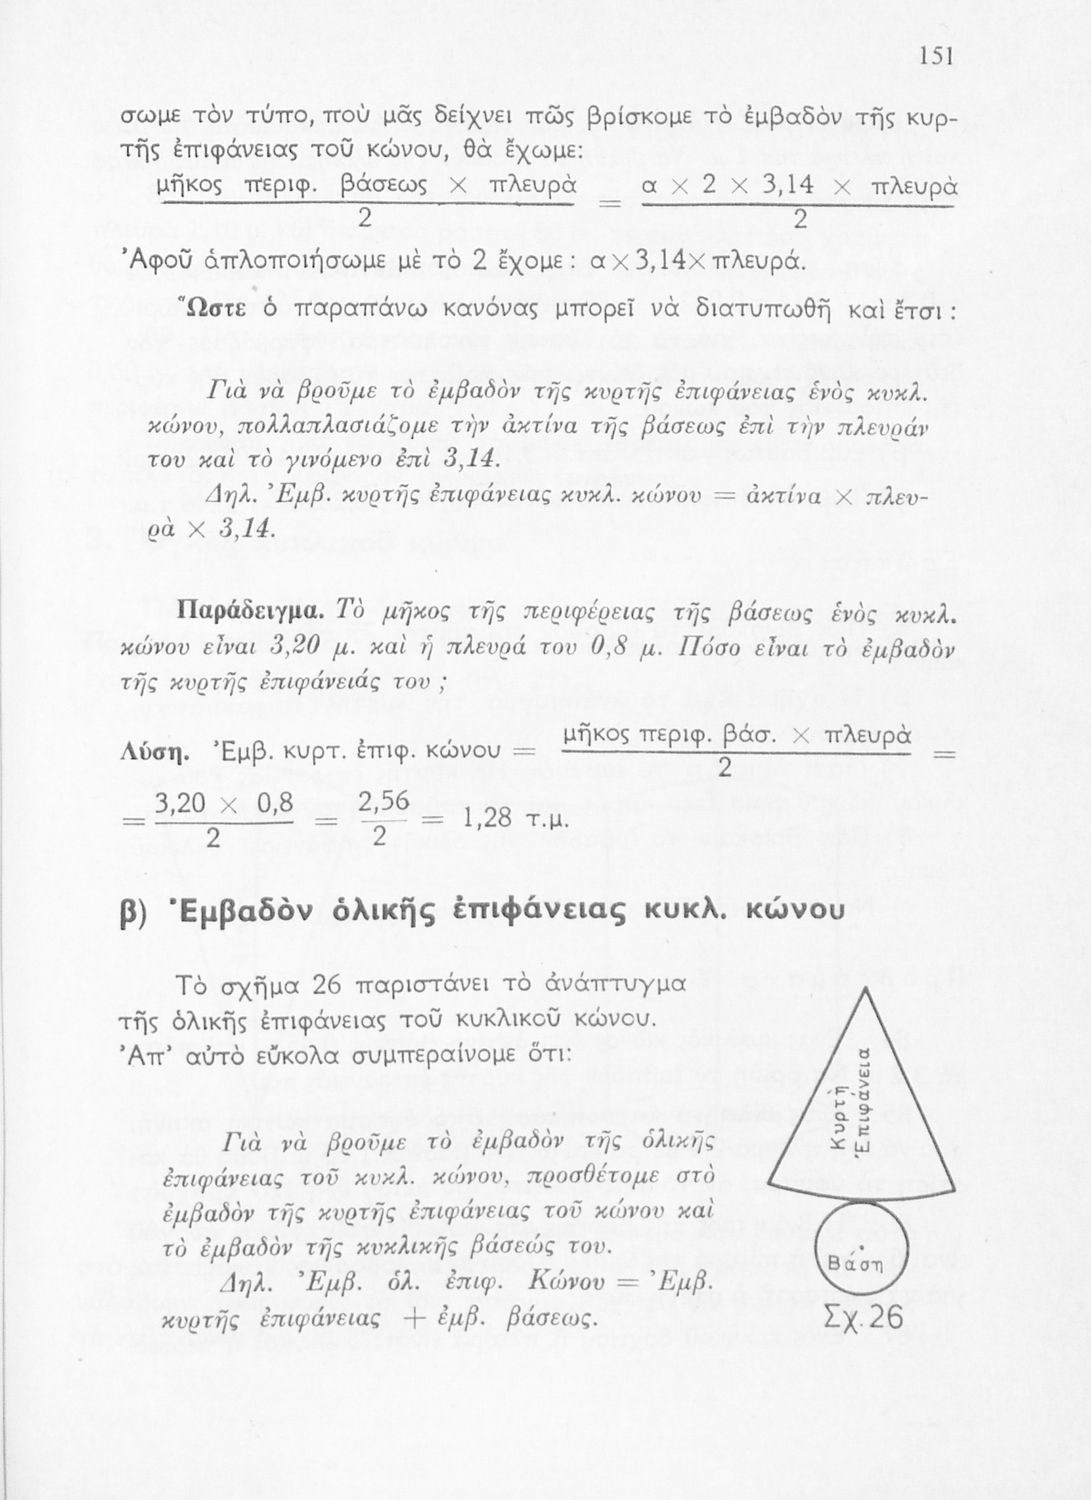 151
σωμε τὸν τύπο, ποὺ μᾶς δείχνει πῶς βρίσκομε τὸ ἐμβαδὸν τῆς κυρ-
τῆς ἐπιφάνειας τοῦ κώνου, θὰ ἔχωμε:
μῆκος περιφ. βάσεως × πλευρὰ / 2 = α × 2 × 3,14 × πλευρὰ / 2
Ἀφοῦ ἁπλοποιήσωμε μὲ τὸ 2 ἔχομε : α×3,14×πλευρά.
Ὥστε ὁ παραπάνω κανόνας μπορεῖ νὰ διατυπωθῆ καὶ ἔτσι :
Γιὰ νὰ βροῦμε τὸ ἐμβαδὸν τῆς κυρτῆς ἐπιφάνειας ἑνὸς κυκλ.
κώνου, πολλαπλασιάζομε τὴν ἀκτίνα τῆς βάσεως ἐπὶ τὴν πλευράν
του καὶ τὸ γινόμενο ἐπὶ 3,14.
Δηλ. Ἐμβ. κυρτῆς ἐπιφάνειας κυκλ. κώνου = ἀκτίνα × πλευ-
ρὰ × 3,14.
Παράδειγμα. Τὸ μῆκος τῆς περιφέρειας τῆς βάσεως ἑνὸς κυκλ.
κώνου εἶναι 3,20 μ. καὶ ἡ πλευρά του 0,8 μ. Πόσο εἶναι τὸ ἐμβαδὸν
τῆς κυρτῆς ἐπιφάνειάς του ;
Λύση. Ἐμβ. κυρτ. ἐπιφ. κώνου = μῆκος περιφ. βάσ. × πλευρὰ / 2 =
= 3,20 × 0,8 / 2 = 2,56 / 2 = 1,28 τ.μ.
β) Ἐμβαδὸν ὁλικῆς ἐπιφάνειας κυκλ. κώνου
Τὸ σχῆμα 26 παριστάνει τὸ ἀνάπτυγμα
τῆς ὁλικῆς ἐπιφάνειας τοῦ κυκλικοῦ κώνου.
Ἀπ' αὐτὸ εὔκολα συμπεραίνομε ὅτι:
Γιὰ νὰ βροῦμε τὸ ἐμβαδὸν τῆς ὁλικῆς
ἐπιφάνειας τοῦ κυκλ. κώνου, προσθέτομε στὸ
ἐμβαδὸν τῆς κυρτῆς ἐπιφάνειας τοῦ κώνου καὶ
τὸ ἐμβαδὸν τῆς κυκλικῆς βάσεώς του.
Δηλ. Ἐμβ. ὁλ. ἐπιφ. Κώνου = Ἐμβ.
κυρτῆς ἐπιφάνειας + ἐμβ. βάσεως.
Κυρτὴ
Ἐπιφάνεια
Βάση
Σχ. 26